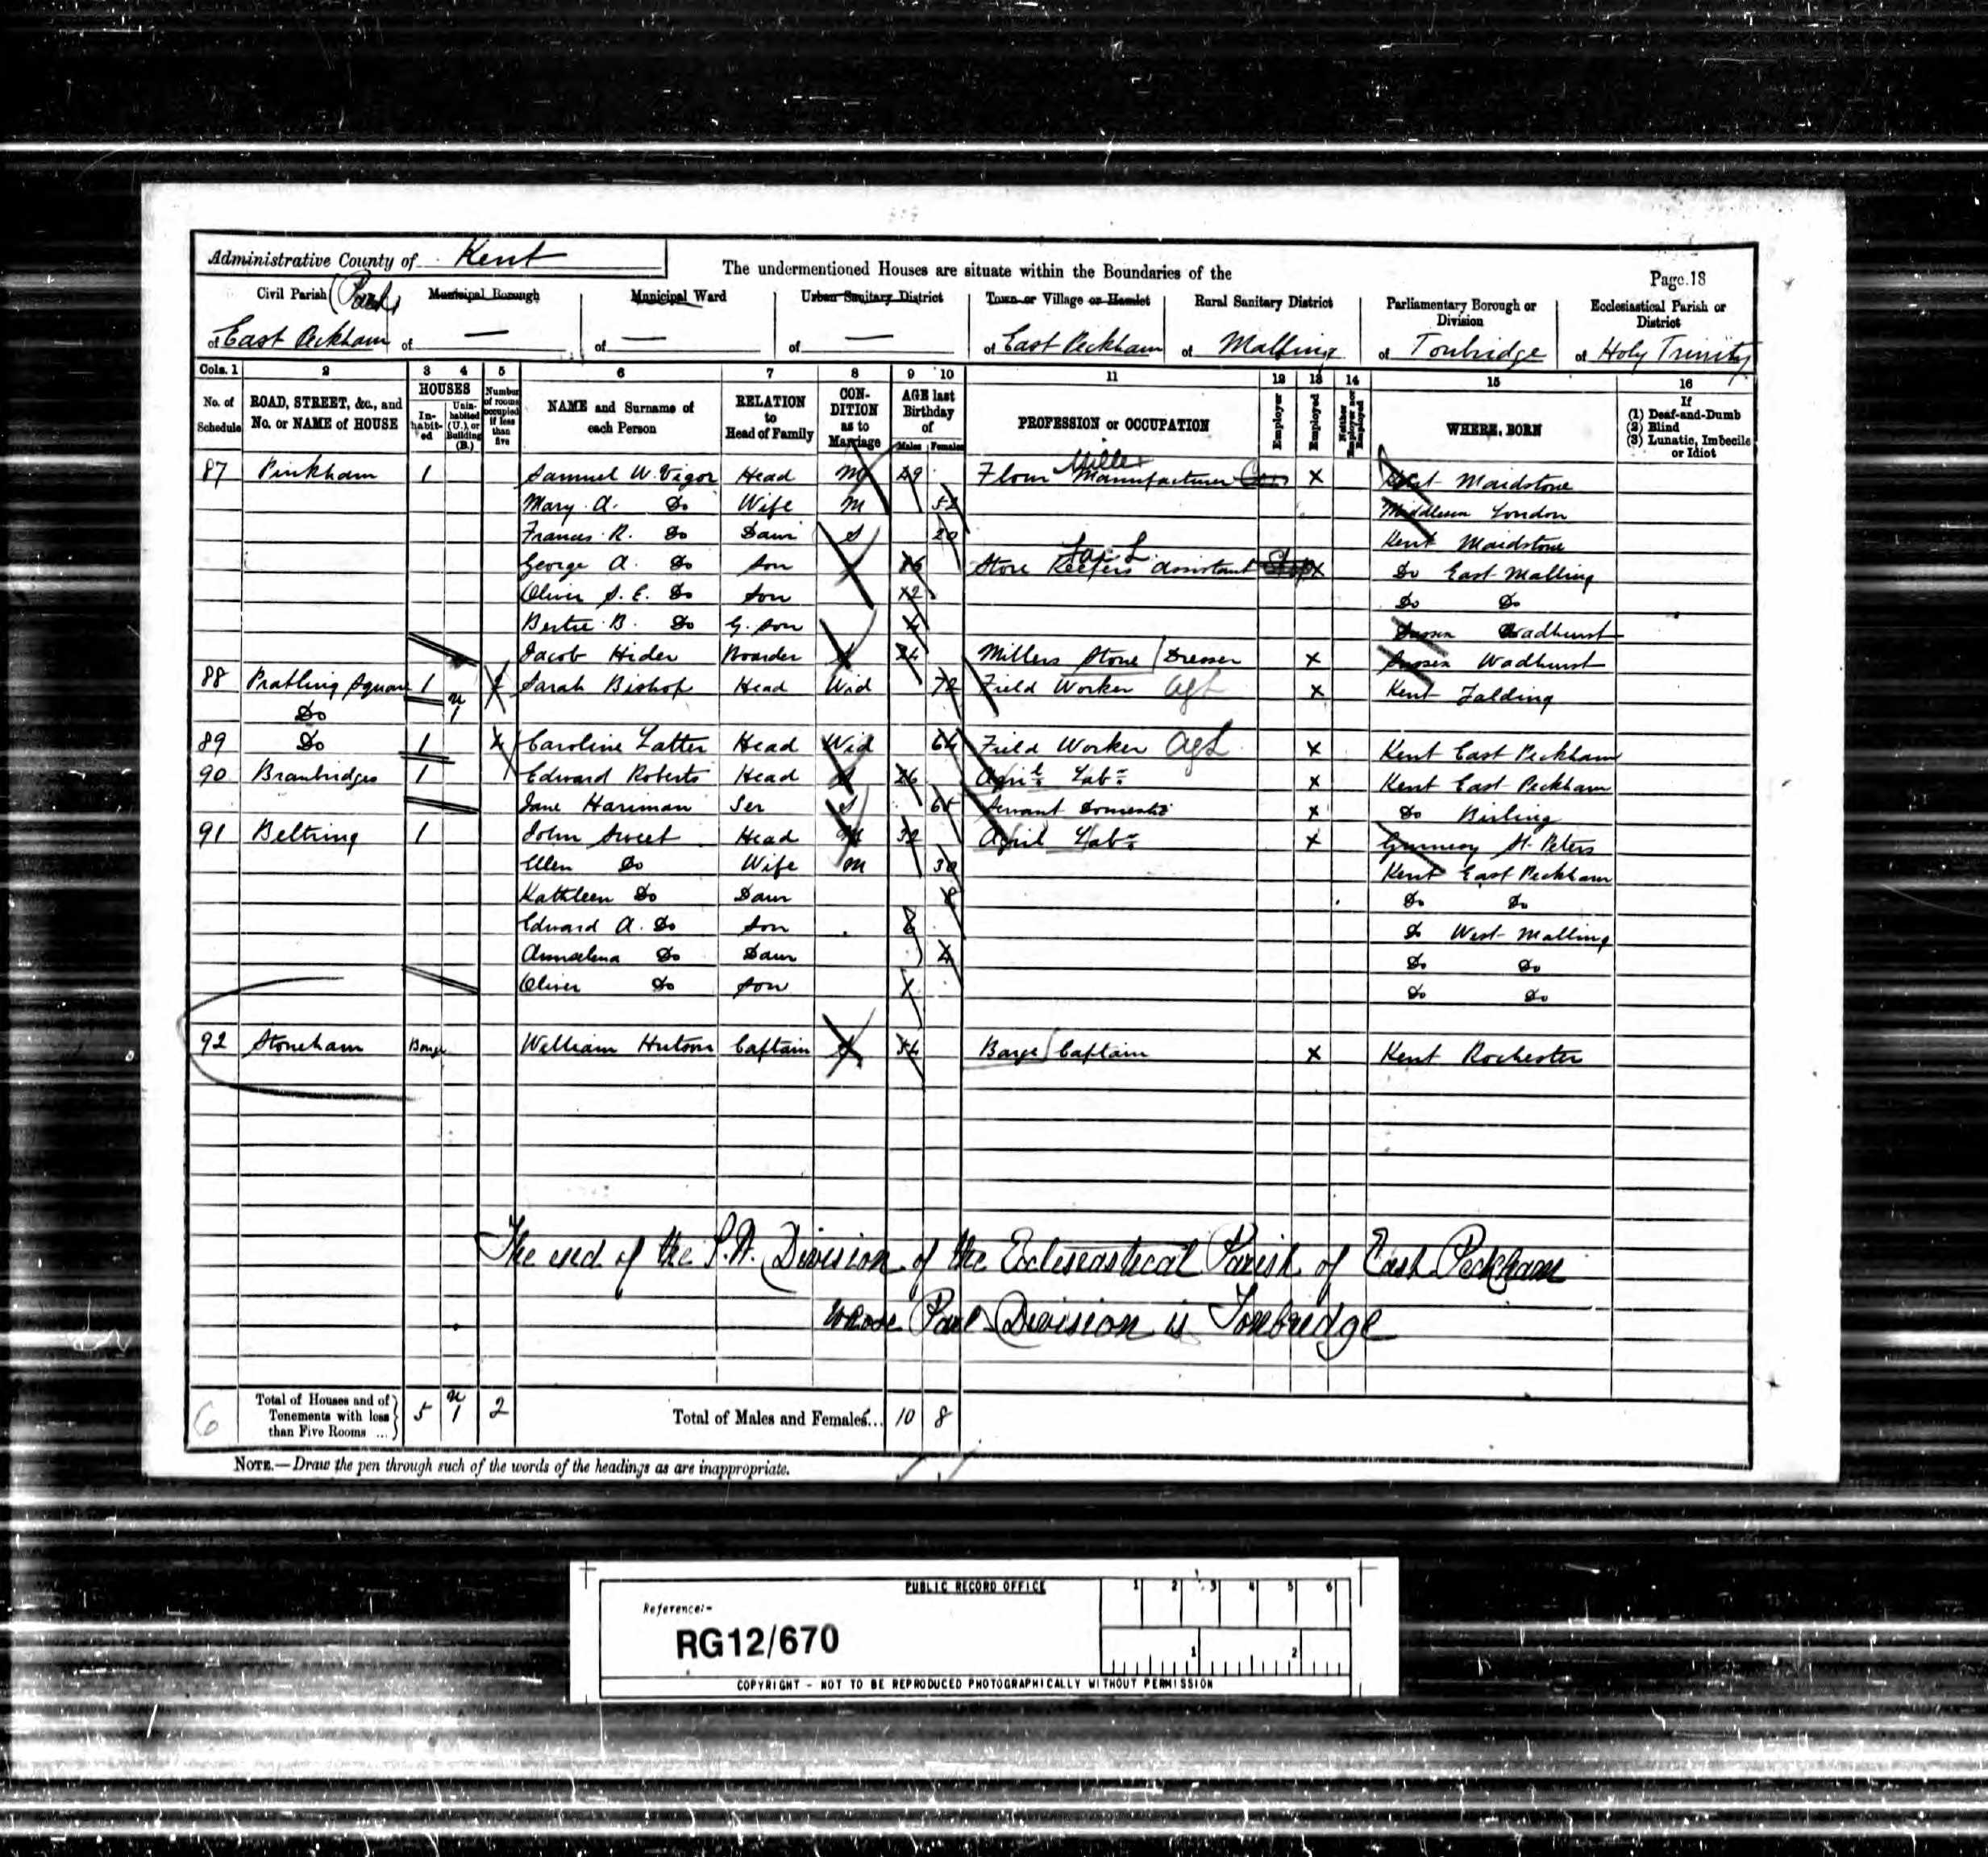 Administrative County of Kent
The undermentioned Houses are situate within the Boundaries of the
Page 18
Civil Parish (Part of East Peckham
Municipal Borough of —
Municipal Ward of —
Urban Sanitary District of —
Town or Village or Hamlet of East Peckham
Rural Sanitary District of Malling
Parliamentary Borough or Division of Tonbridge
Ecclesiastical Parish or District of Holy Trinity
Cols. 1 2 3 4 5 6 7 8 9 10 11 12 13 14 15 16
No. of Schedule
ROAD, STREET, &c., and No. or NAME of HOUSE
HOUSES
In-habit-ed
Unin-habited (U.), or Building (B.)
Number of rooms occupied if less than five
NAME and Surname of each Person
RELATION to Head of Family
CON-DITION as to Marriage
AGE last Birthday of
Males Females
PROFESSION or OCCUPATION
Employer
Employed
Neither Employer nor Employed
WHERE BORN
If
(1) Deaf-and-Dumb
(2) Blind
(3) Lunatic, Imbecile or Idiot
87 Pinkham 1 Samuel W. Vigor Head M 49 Flour Miller Manufacturer X Kent Maidstone
Mary A. Do Wife M 52 Middlesex London
Frances R. Do Daur S 20 Kent Maidstone
George A. Do Son 16 Store Keepers assistant X Do East Malling
Oliver S. E. Do Son 12 Do Do
Bertie B. Do G. Son 4 Sussex Wadhurst
Jacob Hider Boarder S 24 Millers Stone / Dresser X Sussex Wadhurst
88 Pratling Square 1 2 Sarah Bishop Head Wid 72 Field Worker Agl X Kent Yalding
Do u 1
89 Do 1 4 Caroline Latter Head Wid 64 Field Worker Agl X Kent East Peckham
90 Branbridges 1 Edward Roberts Head S 26 Agril Labr X Kent East Peckham
Jane Hariman Ser S 65 Servant Domestic X Do Birling
91 Beltring 1 John Sweet Head M 32 Agril Labr X Guernsey St. Peters
Ellen Do Wife M 30 Kent East Peckham
Kathleen Do Daur 8 Do Do
Edward A. Do Son Do West Malling
Do Daur 4 Do Do
Oliver Do Son Do Do
92 Stoneham Barge William Hutson Captain S 54 Barge / Captain X Kent Rochester
The end of the S.W. Division of the Ecclesiastical Parish of East Peckham
whose Parl Division is Tonbridge
Total of Houses and of Tenements with less than Five Rooms ... 5 u 1 2
Total of Males and Females... 10 8
6
NOTE.—Draw the pen through such of the words of the headings as are inappropriate.
PUBLIC RECORD OFFICE
1 2 3 4 5 6
Reference:-
RG12/670
1 2
COPYRIGHT - NOT TO BE REPRODUCED PHOTOGRAPHICALLY WITHOUT PERMISSION